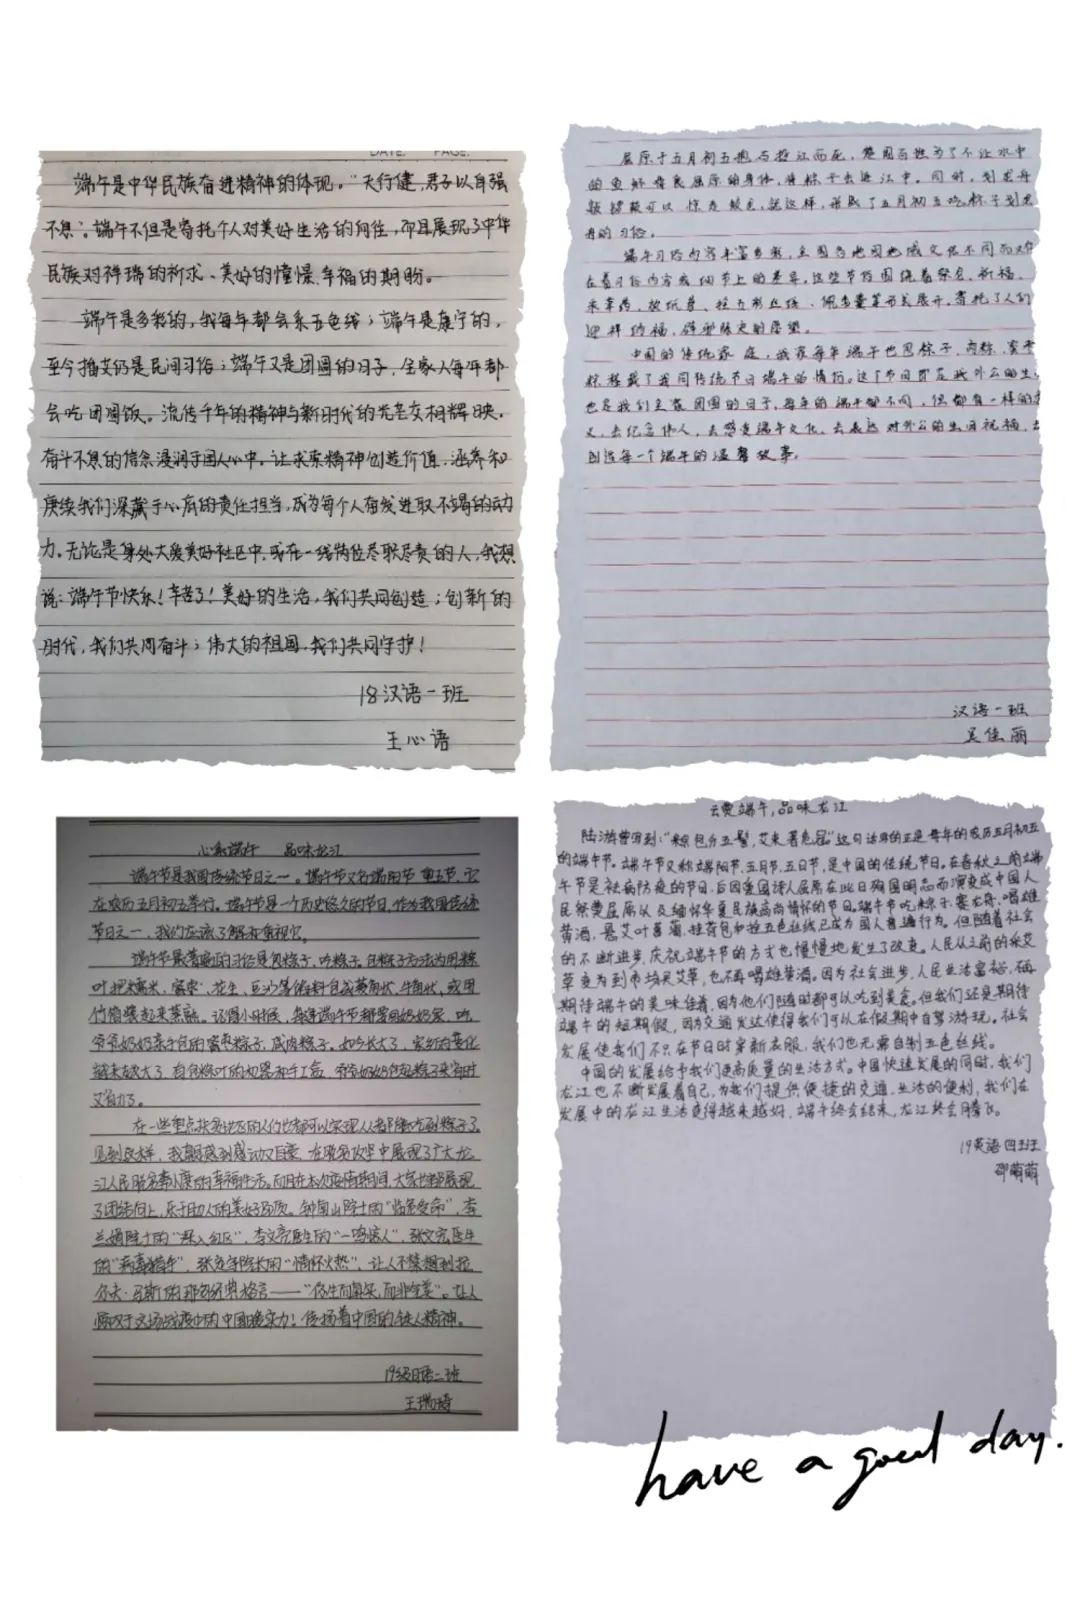 DATE. PAGE.
端午是中华民族奋进精神的体现。“天行健,君子以自强
不息”。端午不但是寄托个人对美好生活的向往,而且展现了中华
民族对祥瑞的祈求、美好的憧憬、幸福的期盼。
端午是多彩的,我每年都会系五色线;端午是康宁的,
至今插艾仍是民间习俗;端午又是团圆的日子,全家人每年都
会吃团圆饭。流传千年的精神与新时代的光芒交相辉映,
奋斗不息的信念浸润于国人心中。让求索精神创造价值,涵养和
赓续我们深藏于心底的责任担当,成为每个人奋发进取不竭的动
力。无论是身处大爱美好社区中,或在一线岗位尽职尽责的人,我想
说:端午节快乐!辛苦了!美好的生活,我们共同创造;创新的
时代,我们共同奋斗;伟大的祖国,我们共同守护!
18汉语一班
王心语
屈原于五月初五抱石投江而死,楚国百姓为了不让水中
的鱼虾 屈原的身体,将粽子丢进江中。同时,划龙舟
可以 ,就这样,形成了五月初五吃粽子划龙
舟的习俗。
端午习俗内容丰富多彩,全国各地因地域文化不同而又存
在着习俗内容或细节上的差异,这些节俗围绕着祭龙、祈福、
采草药、 、拴五彩丝线、佩香囊等形式展开,寄托了人们
迎祥纳福,辟邪除灾的愿望。
中国的传统家庭,我家每年端午也包粽子,肉粽、蜜枣
粽 了我同传统节日端午的情怀。这个节日即是我外公的生
也是我们全家团圆的日子,每年的端午都不同,但都有一样的意
义,去纪念伟人,去感受端午文化,去表达对外公的生日祝福,去
创造每一个端午的温馨故事。
汉语一班
吴佳丽
心系端午 品味龙江
端午节是我国传统节日之一。端午节又名端阳节、重五节,它
在农历五月初五举行。端午节是一个历史悠久的节日,作为我国传统
节日之一,我们应该了解和重视它。
端午节最普遍的习俗是包粽子、吃粽子。包粽子方法为用粽
叶把糯米、蜜枣、花生、豆沙等馅料包成菱角状、牛角状,或用
竹筒装起来蒸熟。记得小时候,每年端午节都要回奶奶家,吃
爷爷奶奶亲手包的蜜枣粽子、咸肉粽子。如今长大了,家乡的变化
越来越大了,有包粽叶的机器和手工盒,爷爷奶奶包起粽子来省时
又省力了。
在一些重点扶贫地区的人们也都可以实现人人都能吃到粽子了。
见到这样,我颇感到感动又自豪,在脱贫攻坚中展现了广大龙
江人民脱贫奔小康的幸福生活。而且在本次疫情期间,大家也都展现
了团结向上,乐于助人的美好品质。钟南山院士的“临危受命”,李
兰娟院士的“深入红区”,李文亮医生的“一鸣惊人”,张文宏医生
的“病毒猎手”,张定宇院长的“情怀火热”,让人不禁想到拉
尔夫·马斯 的那句经典格言——“你生而真实,而非完美”。让人
感叹于这场战疫中的中国硬实力!传扬着中国的铁人精神。
19级日语二班
王瑞琦
云赏端午,品味龙江
陆游曾写到:“粽包分五髻,艾束著危冠”这句话写的正是每年的农历五月初五
的端午节。端午节又称端阳节,五月节,五日节,是中国的传统节日。在春秋之前端
午节是祛病防疫的节日,后因爱国诗人屈原在此日殉国明志而演变成中国人
民祭奠屈原以及缅怀华夏民族高尚情怀的节日。端午节吃粽子、赛龙舟、喝雄
黄酒、悬艾叶菖蒲、挂荷包和拴五色丝线已成为国人普遍行为。但随着社会
的不断进步,庆祝端午节的方式也慢慢地发生了改变。人民从之前的采艾
草变为到市场买艾草,也不再喝雄黄酒,因为社会进步,人民生活富裕,不再
期待端午的美味佳肴,因为他们随时都可以吃到美食。但我们还是期待
端午的短期假,因为交通发达使得我们可以在假期中自驾游玩。社会
发展使我们不只在节日时穿新衣服,我们也无需自制五色丝线。
中国的发展给予我们更高质量的生活方式。中国快速发展的同时,我们
龙江也不断发展着自己,为我们提供便捷的交通,生活的便利,我们在
发展中的龙江生活变得越来越好,端午终会结束,龙江终会腾飞。
19英语四班
邵萌萌
have a good day.